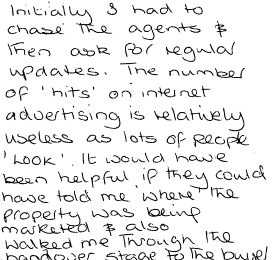 Initially I had to
chase the agents &
then ask for regular
updates. The number
of 'hits' on internet
advertising is relatively
useless as lots of people
'look'. It would have
been helpful if they could
have told me 'where' the
property was being
marketed & also
walked me through the
handover stage to the buyer